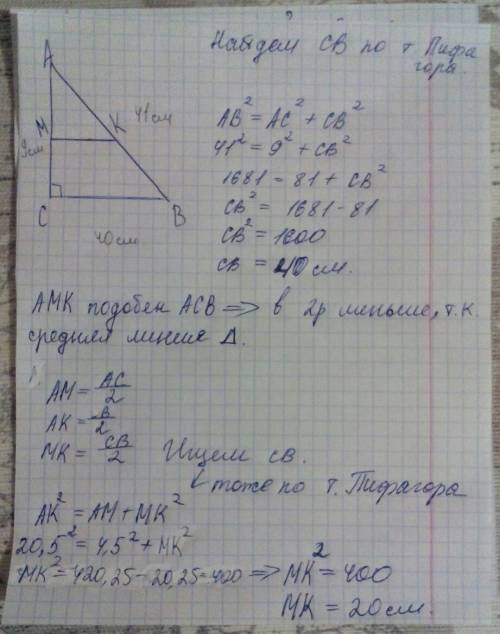 Найдем СВ по т. Пифа
гора.
А
М
К
41см
9см
С
В
40см
AB² = AC² + CB²
41² = 9² + CB²
1681 = 81 + CB²
CB² = 1681 - 81
CB² = 1600
CB = 40 см.
АМК подобен АСВ => в 2р меньше, т.к.
средняя линия Δ.
AM = AC/2
AK = B/2
MK = CB/2 Ищем св.
тоже по т. Пифагора
AK² = AM + MK²
20,5² = 4,5² + MK²
MK² = 420,25 - 20,25 = 400 => MK² = 400
MK = 20см.